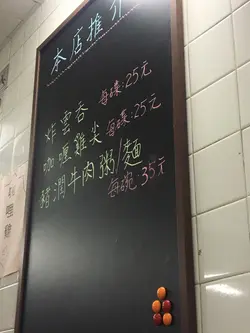 本店推介
炸雲吞 每碟:25元
咖喱雞尖 每碟:25元
豬潤牛肉粥/麵
每碗35元